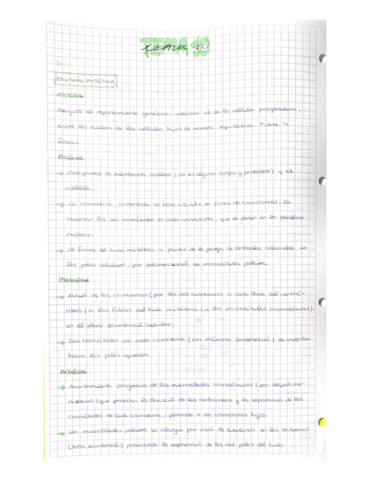 TEMA 10
División mitótica
Mitosis
Asegura el repartimiento genético, idéntico al de la célula progenitora,
entre los núcleos de las células hijas de manera equitativa. Tiene 4
fases:
Profase
Desaparece la membrana nuclear (no en algunos hongos y protistas) y el
nucléolo.
La cromatina condensada se hace visible en forma de cromosomas. Se
observan las dos cromátidas en cada cromosoma, que se pegan en la periferia
nuclear.
Se forma el huso mitótico a partir de la pareja de centriolos colocados en
los polos celulares, por polimerización de microtúbulos polares.
Metafase
Unión de los cromosomas (por los dos cinetocoros a cada lado del centró-
mero) a las fibras del huso mitótico (a los microtúbulos cromosómicos)
en el plano ecuatorial celular.
Las cromátidas de cada cromosoma (con máxima condensación) se orientan
hacia los polos opuestos.
Anafase
Acortamiento progresivo de los microtúbulos cromosómicos (por despolime-
rización) que provocan la división de los centrómeros y la separación de las
cromátidas de cada cromosoma, pasando a ser cromosomas hijos.
Los microtúbulos polares se alargan por unión de tubulinas en los extremos
(zona ecuatorial) provocando la separación de los dos polos del huso.